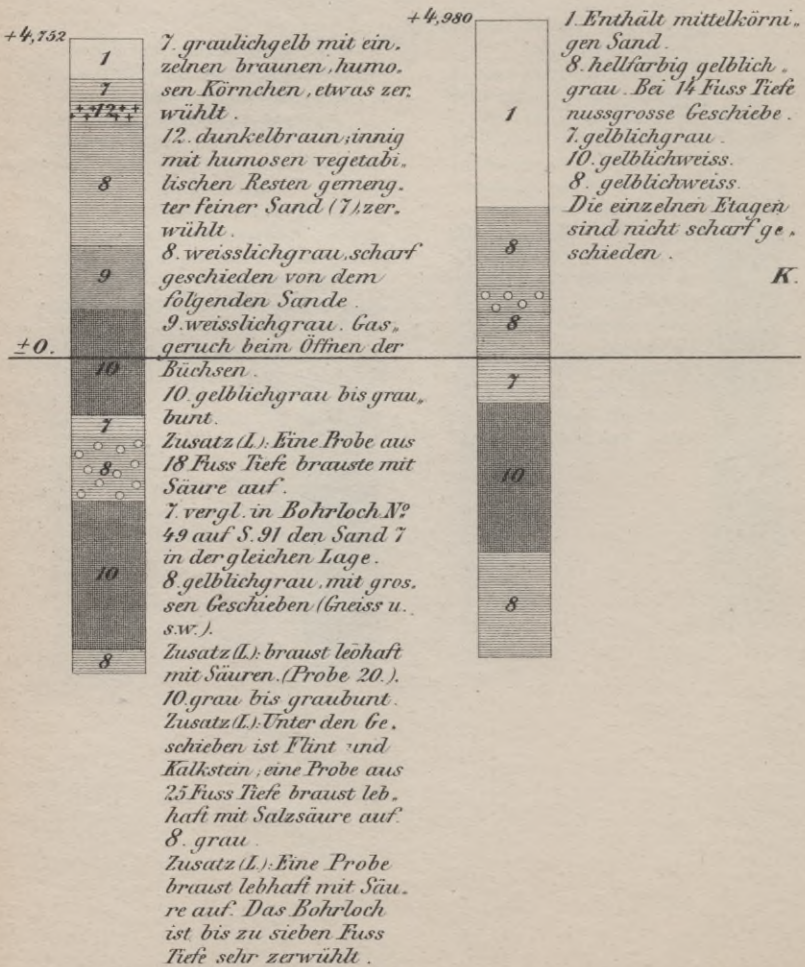 +4,752
1
7
12
8
9
±0.
10
7
8
10
8
7. graulichgelb mit ein-
zelnen braunen, humo-
sen Körnchen, etwas zer-
wühlt.
12. dunkelbraun; innig
mit humosen vegetabi-
lischen Resten gemeng-
ter feiner Sand (7), zer-
wühlt.
8. weisslichgrau, scharf
geschieden von dem
folgenden Sande.
9. weisslichgrau. Gas-
geruch beim Öffnen der
Büchsen.
10. gelblichgrau bis grau-
bunt.
Zusatz (L): Eine Probe aus
18 Fuss Tiefe brauste mit
Säure auf.
7. vergl. in Bohrloch Nº
49 auf S. 91 den Sand 7
in der gleichen Lage.
8. gelblichgrau, mit gros-
sen Geschieben (Gneiss u.
s.w.).
Zusatz (L): braust lebhaft
mit Säuren. (Probe 20.).
10. grau bis graubunt.
Zusatz (L): Unter den Ge-
schieben ist Flint und
Kalkstein; eine Probe aus
25 Fuss Tiefe braust leb-
haft mit Salzsäure auf.
8. grau.
Zusatz (L): Eine Probe
braust lebhaft mit Säu-
re auf. Das Bohrloch
ist bis zu sieben Fuss
Tiefe sehr zerwühlt.
+4,980
1
8
8
7
10
8
1. Enthält mittelkörni-
gen Sand.
8. hellfarbig gelblich-
grau. Bei 14 Fuss Tiefe
nussgrosse Geschiebe.
7. gelblichgrau.
10. gelblichweiss.
8. gelblichweiss.
Die einzelnen Etagen
sind nicht scharf ge-
schieden.
K.